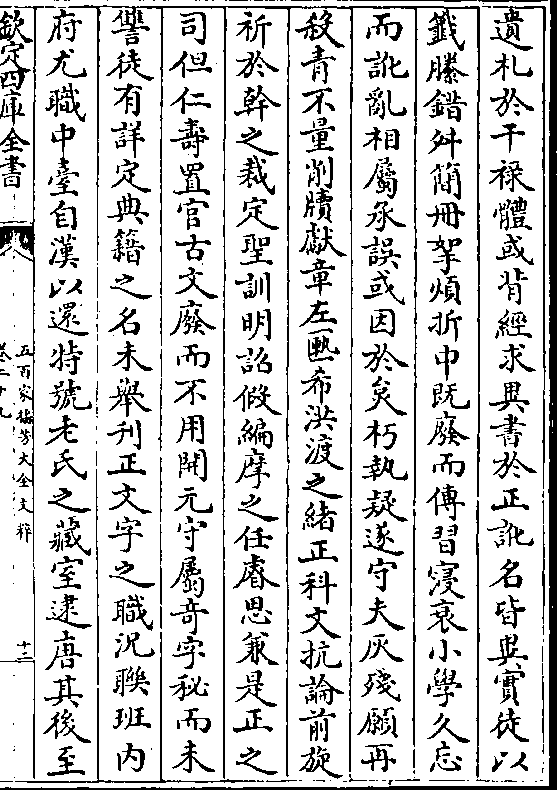 遺札於干禄體或背經求異書於正訛名皆與實徒以
籖縢錯舛簡冊挐煩折中既廢而傳習寖衰小學久忘
而訛亂相屬承誤或因於炱朽執疑遂守夫灰殘願再
殺青不量削牘獻章左匭希洪渡之緒正科文抗論前旋
祈於幹之裁定聖訓明詔假編摩之任睿思兼是正之
司但仁壽置官古文廢而不用開元守屬竒字秘而未
讐徒有詳定典籍之名未舉刊正文字之職況聯班内
府尤職中臺自漢以還特號老氏之藏室逮唐其後至
欽定四庫全書
五百家播芳大全文粹
卷二十九
十二